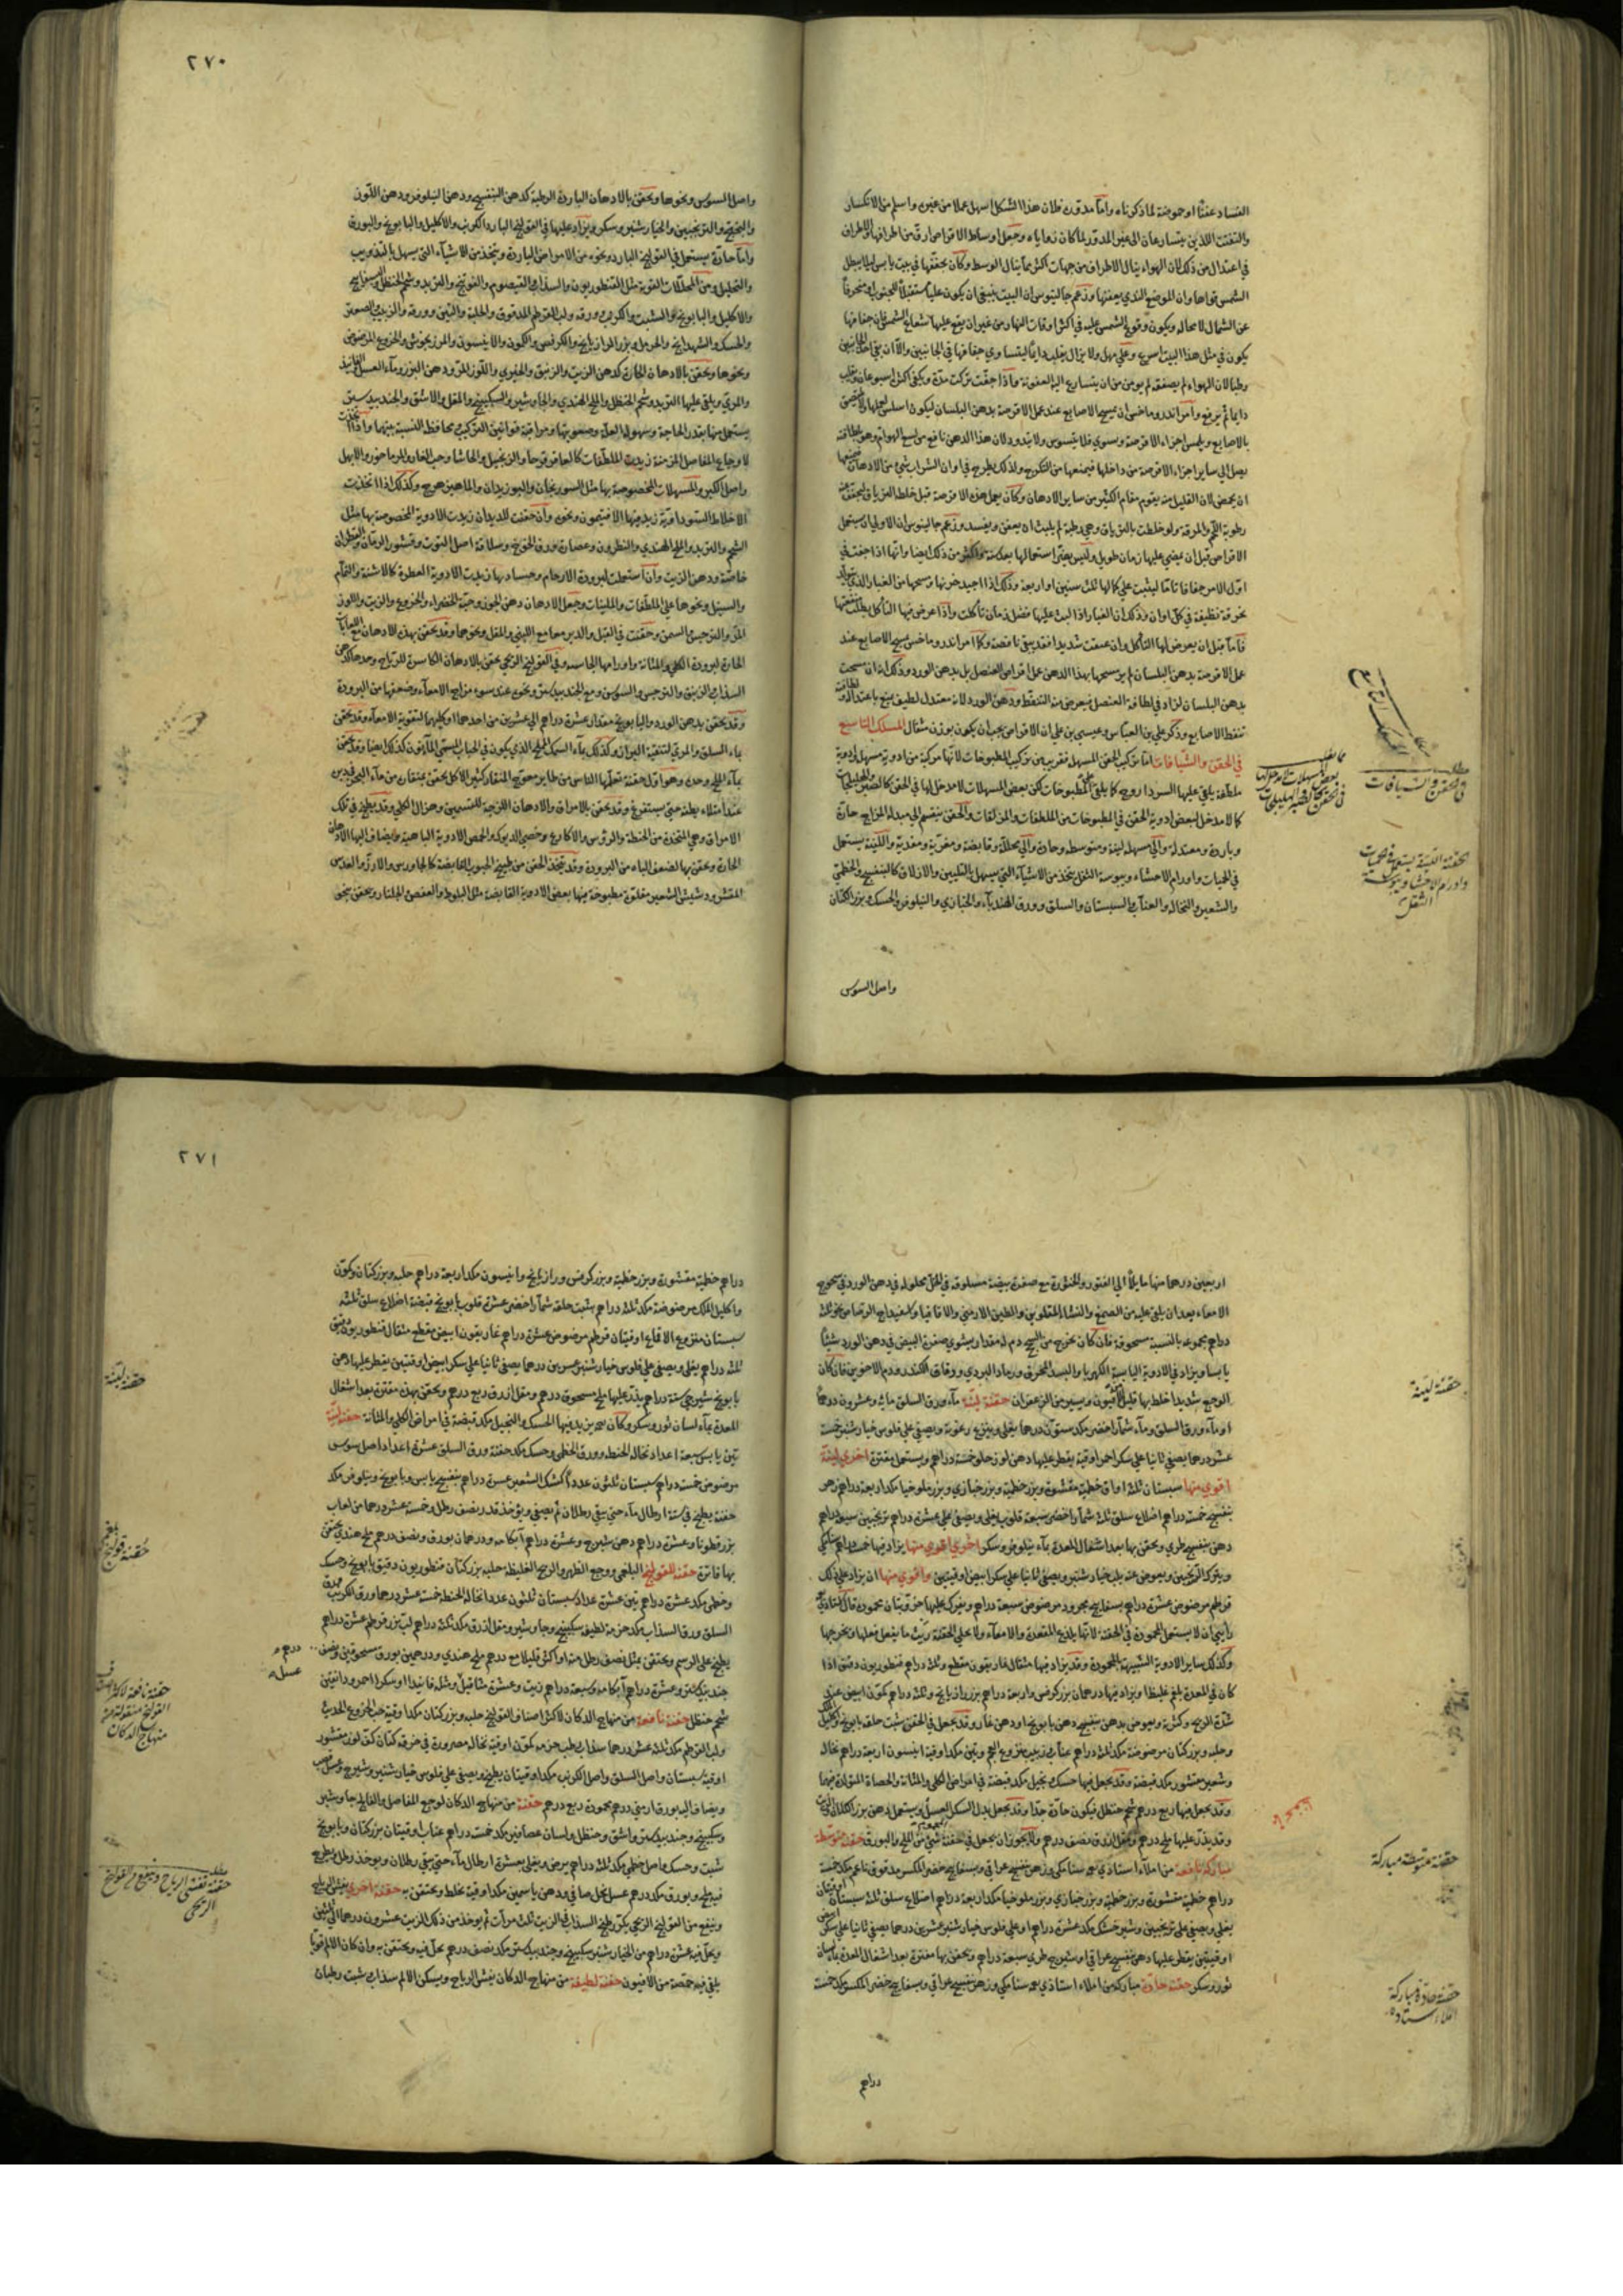 الفساد عفنًا او حموضة لما ذكرناه واما مدورة فلان هذا الشكل اسهل عملا من غيره واسلم من الانكسار
والتفتت اللذين يتسارعان الى غير المدور لمكان زواياه وجعل اوساط الاقراص ارق من اطرافها والاطراف
في اعتدال من ذلك لان الهواء ينال الاطراف من جهات اكثر مما ينال الوسط وكان يجففها في بيت يابس
الشمس تواها وان الموضع الندي يعفنها وزعم جالينوس ان البيت ينبغي ان يكون
عن الشمال لا محاله ويكون وقوع الشمس عليه في اكثر اوقات النهار من غير ان يقع عليها شعاع الشمس فان جفافها
يكون في مثل هذا البيت اسرع وعلى مهل ولا يزال يقلب دايما ليتساوى جفافها في الجانبين
بالاصابع ويلمس اجزاء الاقرصة وستوى فلا يتسوس ولا تدود لان هذا الدهن نافع من لسع الهوام
يصل الى ساير اجزاء الاقرصة من داخلها فيمنعها من التكرج ولذلك يطرح في اوان الشراب شئ من الادهان
ان يحمض لان القليل منه يقوم مقام الكثير من ساير الادهان وكان يعمل هذه الاقرصة قبل خلط الترياق
رطوبة اللحم والمرقة ولو خلطت بالترياق وهي رطبة لم يلبث ان يعفن ويفسد وزعم جالينوس ان الاولى ان يستعمل
الاقراص قبل ان يمضي عليها زمان طويل وليس يعنى استعمالها بعد سنة واكثر من ذلك ايضا وانها اذا جفت في
اول الامر جفافا تاما لبثت على كمالها ثلث سنين او اربعة وذلك اذا اجيد خزنها ومسحها من الغبار
بخرقة نظيفة في كل اوان وذلك ان الغبار اذا لبث عليها فضل زمان تأكلت واذا عرض فيها التأكل بطلت منفعتها
فاما قبل ان يعرض لها التأكل وان عتقت شديدا فقد يبقى نافعة وكما امر اندروماخس بمسح الاصابع عند
عمل الاقرصة بدهن البلسان لم يرَ مسحها بهذا الدهن عمل اقراص العنصل بل بدهن الورد وذلك انه ان مسحت
بدهن البلسان لزاد في لطافة العنصل فيعرض منه التنفط ودهن الورد لانه معتدل لطيف يمنع باعتداله
تنفط الاصابع وذكر علي بن العباس وعيسى بن علي ان الاقراص يجب ان يكون بوزن مثقال المسلك التاسع
في الحقن والشيافات اما تركيب الحقن المسهلة فقريب من تركيب المطبوخات لانها مركبة من ادوية مسهلة
كما لا مدخل لبعض ادوية الحقن في المطبوخات من الملطفات والمزلقات والحقن ينقسم الى مبدلة المزاج حارة
وباردة ومعتدلة والى مسهلة لينة ومتوسطة وحادة والى محللة وقابضة ومغرية ومغذية واللينة يستعمل
في الحميات واورام الاحشاء ويبوسة الثفل يتخذ من الاشياء التي يسهل بالتليين والازلاق كالبنفسج والخطمي
والشعير والنخالة والعناب والسبستان والسلق وورق الهندباء والخبازى والنيلوفر والحسك وبزر الكتان
واصل السوس
مطلب
في الحقن والشيافات
الحقنة اللينة يستعمل في الحميات
واورام الاحشا ويبوسة
الثفل
٢٧٠
واصل السوس ونحوها ويحقن بالادهان الباردة الرطبة كدهن البنفسج ودهن النيلوفر ودهن اللوز
والترنجبين والخيارشنبر وسكر ويزاد عليها في القولنج البارد الكرنب والاكليل والبابونج والبورق
واما حادة يستعمل في القولنج البارد ونحوه من الامراض الباردة ويتخذ من الاشياء التي يسهل بالتذويب
والتحليل ومن المحللات القوية مثل القنطوريون والسذاب والقيصوم والفوتنج والتربد وشحم الحنظل
والاكليل والبابونج والشبت والكرنب وورقه ولب القرطم المدقوق والحلبة والتين وورقه والزبيب والصعتر
والحسك والشهدانج والحرمل وبزر الرازيانج والكرفس والكمون والانيسون والمرزنجوش والخروع المرضوض
ونحوها ويحقن بالادهان الحارة كدهن الزيت والزنبق والخيري واللوز المر ودهن البزر وماء العسل
والمري ويلقى عليها التربد وشحم الحنظل والملح الهندي والجاوشير والسكبينج والمقل والاشق والجندبيدستر
يستعمل منها بقدر الحاجة وسهولة العلة وصعوبتها ومراقبة قوانين التركيب محافظة النسبة بينها واذا
لاوجاع المفاصل المزمنة زيدت الملطفات كالعاقرقرحا والزنجبيل والحاشا وحب الغار والمرماحوز والابهل
واصل الكبر والمسهلات المخصوصة بها مثل السورنجان والبوزيدان والماهيزهرج وكذلك اذا اتخذت
الاخلاط السوداوية زيد فيها الافتيمون ونحوه وان حقنت للديدان زيدت الادوية المخصوصة بها مثل
الشيح والتربد والملح الهندي والنطرون وعصارة ورق الخوخ وسلاقة اصل التوت وقشور الرمان والقطران
خاصة ودهن الزيت وان استعملت لبرودة الارحام وجساوتها زيدت الادوية العطرة كالاشنة والثمام
والسنبل ونحوها على الملطفات والملينات وجعل الادهان دهن الجوز وحبة الخضراء والخروع والزيت واللوز
المر والنرجس والسمن وحقنت في القبل والدبر معا مع اللبنى والمقل ونحوهما وقد يحقن بهذه الادهان
الحارة لبرودة الكلى والمثانة واورامها الجاسية وفي القولنج الريحي يحقن بالادهان الكاسرة للرياح وحدها
السذاب والزنبق والنرجس والسوسن ومع الجندبيدستر ونحوه عند سوء مزاج الامعاء وضعفها من البرودة
وقد يحقن بدهن الورد والبابونج مقدار عشرة دراهم الى عشرين من احدهما او كليهما لتقوية الامعاء وقد يحقن
بماء السلق والمري لتنقية البراز وكذلك بماء السمك المملح الذي يكون في الحباب المسمى المالون كذلك ايضا وقد يحقن
بماء الملح وحده وهو اول حقنة تعلمها الناس من طاير معوج المنقار كثير الاكل يحقن بمنقاره من ماء البحر
عند امتلاء بطنه حتى يستفرغ وقد يحقن بالامراق والادهان اللزجة للتسمين وهزال الكلى وقد يطبخ في تلك
الامراق وهي المتخذة من الحنطة والرؤس والاكارع وخصى الديوك والحمص الادوية الباهية ويضاف اليها الادهان
الحارة ويحقن بها لضعف الباه من البرودة وقد يتخذ الحقن من طبيخ الحبوب القابضة كالجاورس والارز والعدس
المقشر وسويق الشعير مقلوة مطبوخة فيها بعض الادوية القابضة مثل البلوط والعفص والجلنار ويحقن بنحو
اربعين درهما منها مايلا الى الفتور والخثورة مع صفرة بيضة مسلوقة في الخل محلولة في دهن الورد في سحوج
الامعاء بعد ان يلقى عليه من الصمغ والنشا المقلوين والطين الارمني والاقاقيا واسفيداج الرصاص نحو ثلثة
دراهم مجموعه بالنسبة مسحوقة فان كان يخرج من السحج دم له مقدار يشوى صفرة البيض في دهن الورد شيئا
يابسا ويزاد في الادوية اليابسة الكهربا والبسد المحرق ورماد البردي ودقاق الكندر ودم الاخوين فان كان
الوجع شديدا خلط بها قليل افيون ويسير من الزعفران حقنة لينة ماء ورق السلق ماية وعشرون درهما
او ماء ورق السلق وماء شمار اخضر مكد ستون درهما يغلى وينزع رغوته ويصفى على فلوس خيارشنبر خمسة
عشر درهما يصفى ثانيا على سكر احمر اوقية يقطر عليها دهن لوز حلو خمسة دراهم ويستعمل مفترة اخرى لينة
اقوى منها سبستان ثلث اواق خطمية مقشورة وبزر خطمية وبزر خبازى وبزر ملوخيا مكد اربعة دراهم زهر
بنفسج خمسة دراهم اضلاع سلق ثلث شمار اخضر سبعة قلوب يغلى ويصفى على عشرة دراهم ترنجبين سبعة دراهم
دهن بنفسج طري ويحقن بها بعد اشغال المعدة بماء نيلوفر وسكر اخرى اقوى منها يزاد فيها خمسة دراهم
ويترك الترنجبين ويعوض عنه بلب خيارشنبر ويصفى ثانيا على سكر ابيض اوقيتين واقوى منها ان يزاد على ذلك
قرطم مرضوض عشرة دراهم بسفايج مجرود مرضوض سبعة دراهم ويفرك عليها خروبتان محمودة قال
رأيي ان لا يستعمل المحمودة في الحقنة لانها يلذع المقعدة والامعاء ولا يخلي الحقنة ريث ما يفعل فعلها ويخرجها
وكذلك ساير الادوية الشبيهة بالمحمودة وقد يزاد فيها مثقال غاريقون مقطع وثلث دراهم قنطوريون دقيق اذا
كان في المعدة بلغم غليظ او يزاد فيها درهمان بزر كرفس واربعة دراهم بزر رازيانج وثلث دراهم كمون ابيض عند
شدة الريح وكثرته ويعوض بدهن بنفسج دهن بابونج او دهن غار وقد يجعل في الحقن شبت حلبة بابونج
وحلبة وبزر كتان مرضوضة مكد ثلث دراهم عناب زبيب منزوع العجم وتين مكد اوقية انيسون اربعة دراهم نخالة
وشعير مقشور مكد قبضة وقد يجعل فيها حسك ونجيل مكد قبضة في امراض الكلى والمثانة والحصاة المتولدة فيها
وقد يجعل فيها ربع درهم شحم حنظل فيكون حادة جدا وقد يجعل بدل السكر العسل ويستعمل دهن بزر الكتان
وقد يذر عليها ملح درهم ومقل ازرق نصف درهم ولا يجوز ان يجعل في حقنة شئ من الملح والبورق حقنة متوسطة
مباركة نافعة من املاء استاذي سنا مكي وزهر بنفسج عراقي وبسفايج خضر المكسر مدقوق ناعم مكد خمسة
دراهم خطمية مقشورة وبزر خطمية وبزر خبازى وبزر ملوخيا مكد اربعة دراهم اضلاع سلق ثلث سبستان اوقيتان
يغلى ويصفى على ترنجبين وشيرخشك مكد عشرة دراهم او على فلوس خيارشنبر عشرين درهما يصفى ثانيا على سكر
اوقيتين يقطر عليها دهن بنفسج عراقي او شيرج طري سبعة دراهم ويحقن بها مفترة بعد اشغال المعدة بماء لسان
ثور وسكر حقنة حادة مباركة من املاء استاذي سنا مكي وزهر بنفسج عراقي وبسفايج خضر المكسر مكد خمسة
دراهم
حقنة لينة
حقنة متوسطة مباركة
حقنة حادة مباركة
املاء استاده
٢٧١
دراهم خطمية مقشورة وبزر خطمية وبزر كرفس ورازيانج وانيسون مكد اربعة دراهم حلبة وبزر كتان وكمون
واكليل الملك مرضوضة مكد ثلثة دراهم شبت حلقة شمار اخضر عشرة قلوب بابونج قبضة اضلاع سلق ثلثة
سبستان منزوع الاقماع اوقيتان قرطم مرضوض عشرة دراهم غاريقون ابيض مقطع مثقال قنطوريون دقيق
ثلثة دراهم يغلى ويصفى على فلوس خيارشنبر عشرين درهما يصفى ثانيا على سكر ابيض اوقيتين يقطر عليها دهن
بابونج شيرجي ستة دراهم يذر عليها ملح مسحوق درهم ومقل ازرق ربع درهم ويحقن بهذه مفترة بعد اشغال
المعدة بماء لسان ثور وسكر وكان يزيد فيها الحسك والنجيل مكد قبضة في امراض الكلى والمثانة حقنة لينة
تين يابس سبعة اعداد نخالة الحنطة وورق الخطمى وحسك مكد حفنة ورق السلق عشرة اعداد اصل سوس
مرضوض خمسة دراهم سبستان ثلثون عددا كشك الشعير عشرة دراهم بنفسج يابس وبابونج ونيلوفر مكد
حفنة يطبخ في ستة ارطال ماء حتى يبقى رطلان ثم يصفى ويؤخذ قدر نصف رطل وخمسة عشر درهما من لعاب
بزر قطونا وعشرة دراهم دهن شيرج وعشرة دراهم آبكامه ودرهمان بورق ونصف درهم ملح هندي يحتقن
بها فاترة حقنة للقولنج البلغمي ووجع الظهر والريح الغليظة حلبة بزر كتان قنطوريون دقيق بابونج وحسك
وخطمى مكد عشرة دراهم تين عشرة عداد سبستان ثلثون عددا نخالة الحنطة خمسة عشر درهما ورق الكرنب
السلق ورق السذاب مكد حزمة لطيفة سكبينج وجاوشير ومقل ازرق مكد ثلثة دراهم لب بزر قرطم عشرة دراهم
يطبخ على الرسم ويحتقن بمثل نصف رطل منه او اكثر قليلا مع درهم ملح هندي ودرهمين بورق مسحوقين ونصف
جندبيدستر وعشرة دراهم آبكامه وسبعة دراهم زيت وعشرة مثاقيل وثلث فانيذا او سكرا احمر ودانقين
شحم حنظل حقنة نافعة من منهاج الدكان لاكثر اصناف القولنج حلبة وبزر كتان مكد اوقية حب الخروع الحديث
ولب القرطم مكد ثلثة عشر درهما سذاب رطب حزمة كمون اوقية نخالة مصرورة في خرقة كتان كف لوز مقشور
اوقية سبستان واصل السلق واصل الكرنب مكد اوقيتان يطبخ ويصفى على فلوس خيارشنبر وشيرج وعسل قصب
ويضاف اليه بورق ارمني درهم محمودة ربع درهم حقنة من منهاج الدكان لوجع المفاصل والفالج جاوشير
وسكبينج وجندبيدستر واشق وحنظل ولسان عصافير مكد خمسة دراهم عناب اوقيتان بزر كتان وبابونج
شبت وحسك واصل خطمي مكد ثلثة دراهم يرض ويغلى بعشرة ارطال ماء حتى يبقى رطلان ويؤخذ رطل ويطرح
فيه ملح وبورق مكد درهم عسل نحل صافي ودهن ياسمين مكد اوقية يخلط ويحتقن به حقنة اخرى يفش الرياح
وينفع من القولنج الريحي يكرر طبخ السذاب في الزيت ثلث مرات ثم يؤخذ من ذلك الزيت عشرون درهما الى ثلثين
ويحل فيه عشرة دراهم من الخيارشنبر سكبينج وجندبيدستر مكد نصف درهم يحل فيه ويحتقن به وان كان الالم قويا
يلقى فيه حمصة من الافيون حقنة لطيفة من منهاج الدكان يفش الرياح ويسكن الالم سذاب شبت رطبان
حقنة لينة
حقنة قولنج بلغمي
درهم
عسل
حقنة نافعة لاكثر اصناف
القولنج منقولة من
منهاج الدكان
مطلب
حقنة تفش الرياح وينفع من القولنج
الريحي